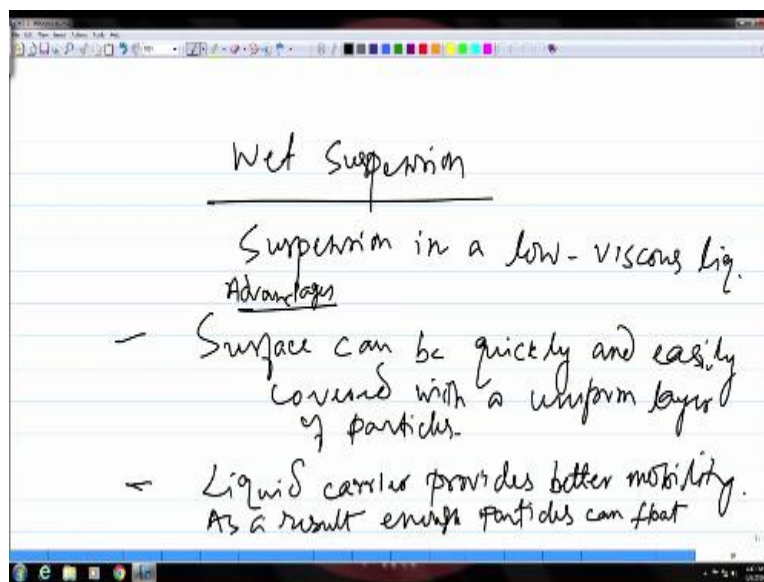 Wet Suspension
Suspension in a low-viscous liq.
Advantages
- Surface can be quickly and easily
covered with a uniform layer
of particles.
- Liquid carrier provides better mobility.
As a result enough particles can float